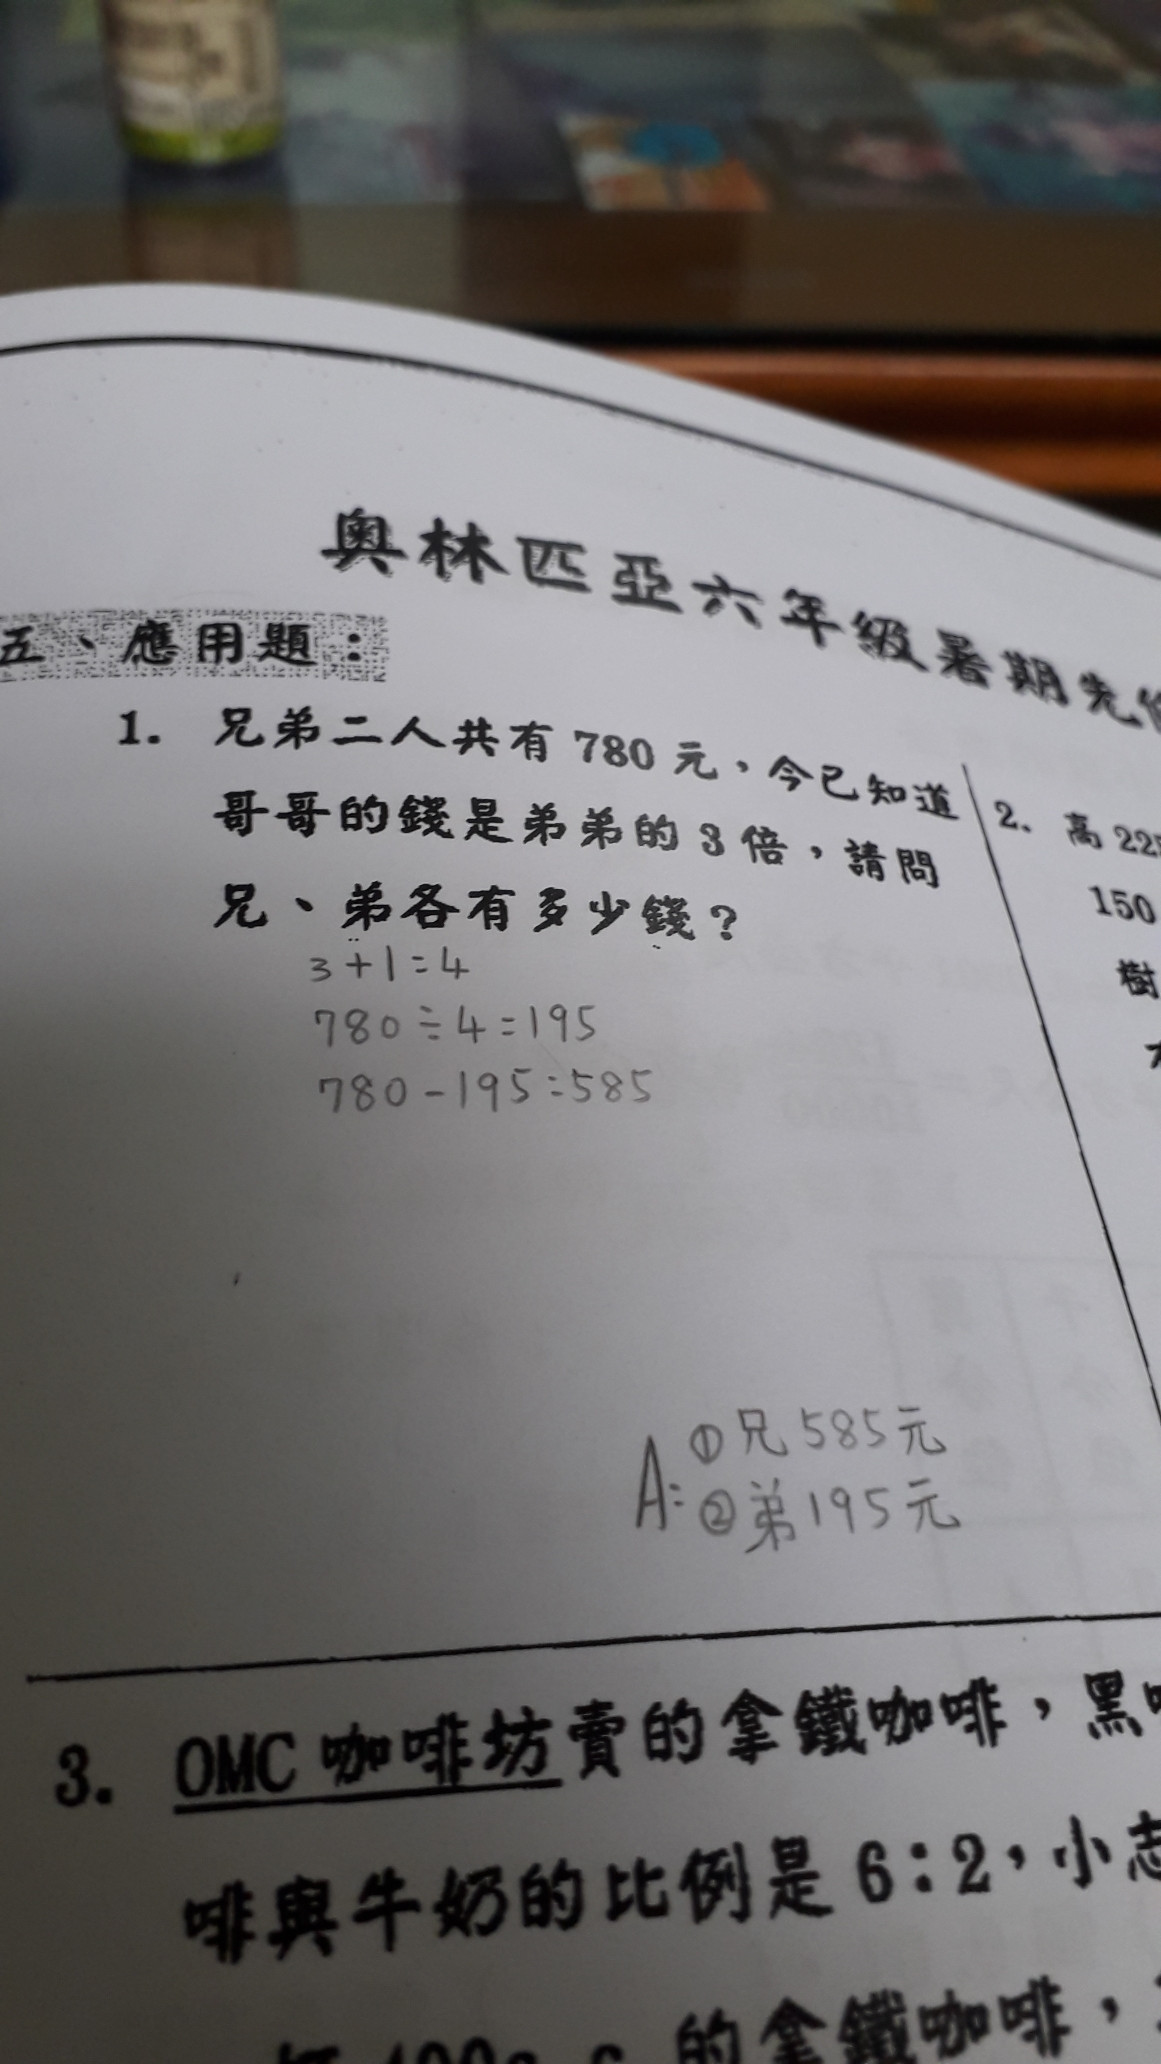 奧林匹亞六年級暑期先
五、應用題：
1. 兄弟二人共有 780 元，今已知道
哥哥的錢是弟弟的 3 倍，請問
兄、弟各有多少錢？
3+1=4
780÷4=195
780-195=585
A: ①兄 585元
②弟 195元
2. 高 22
150
樹
3. OMC 咖啡坊賣的拿鐵咖啡，黑
啡與牛奶的比例是 6：2，小志
的拿鐵咖啡，